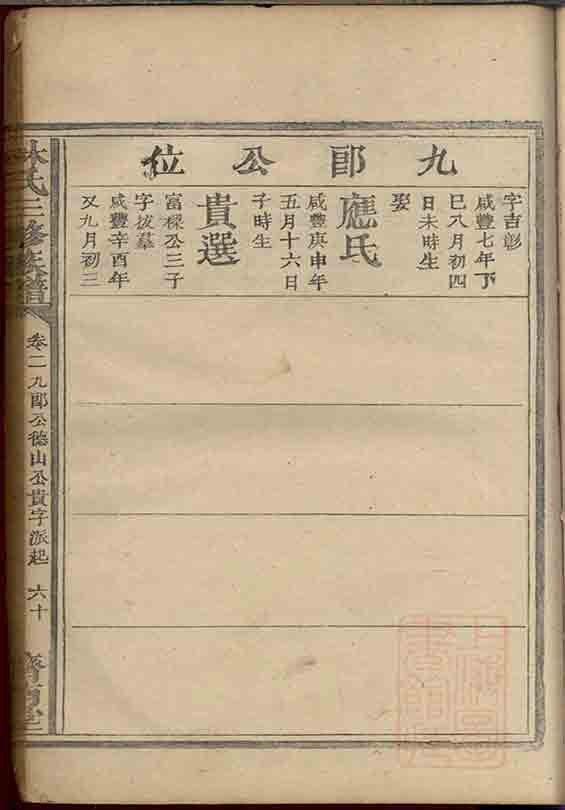 九郎公位
字吉彰
咸豐七年丁
巳八月初四
日未時生
娶
應氏
咸豐庚申年
五月十六日
子時生
貴選
富樑公三子
字拔羣
咸豐辛酉年
又九月初三
林氏三修族譜
卷二九郎公德山公貴字派起 六十
濟南堂